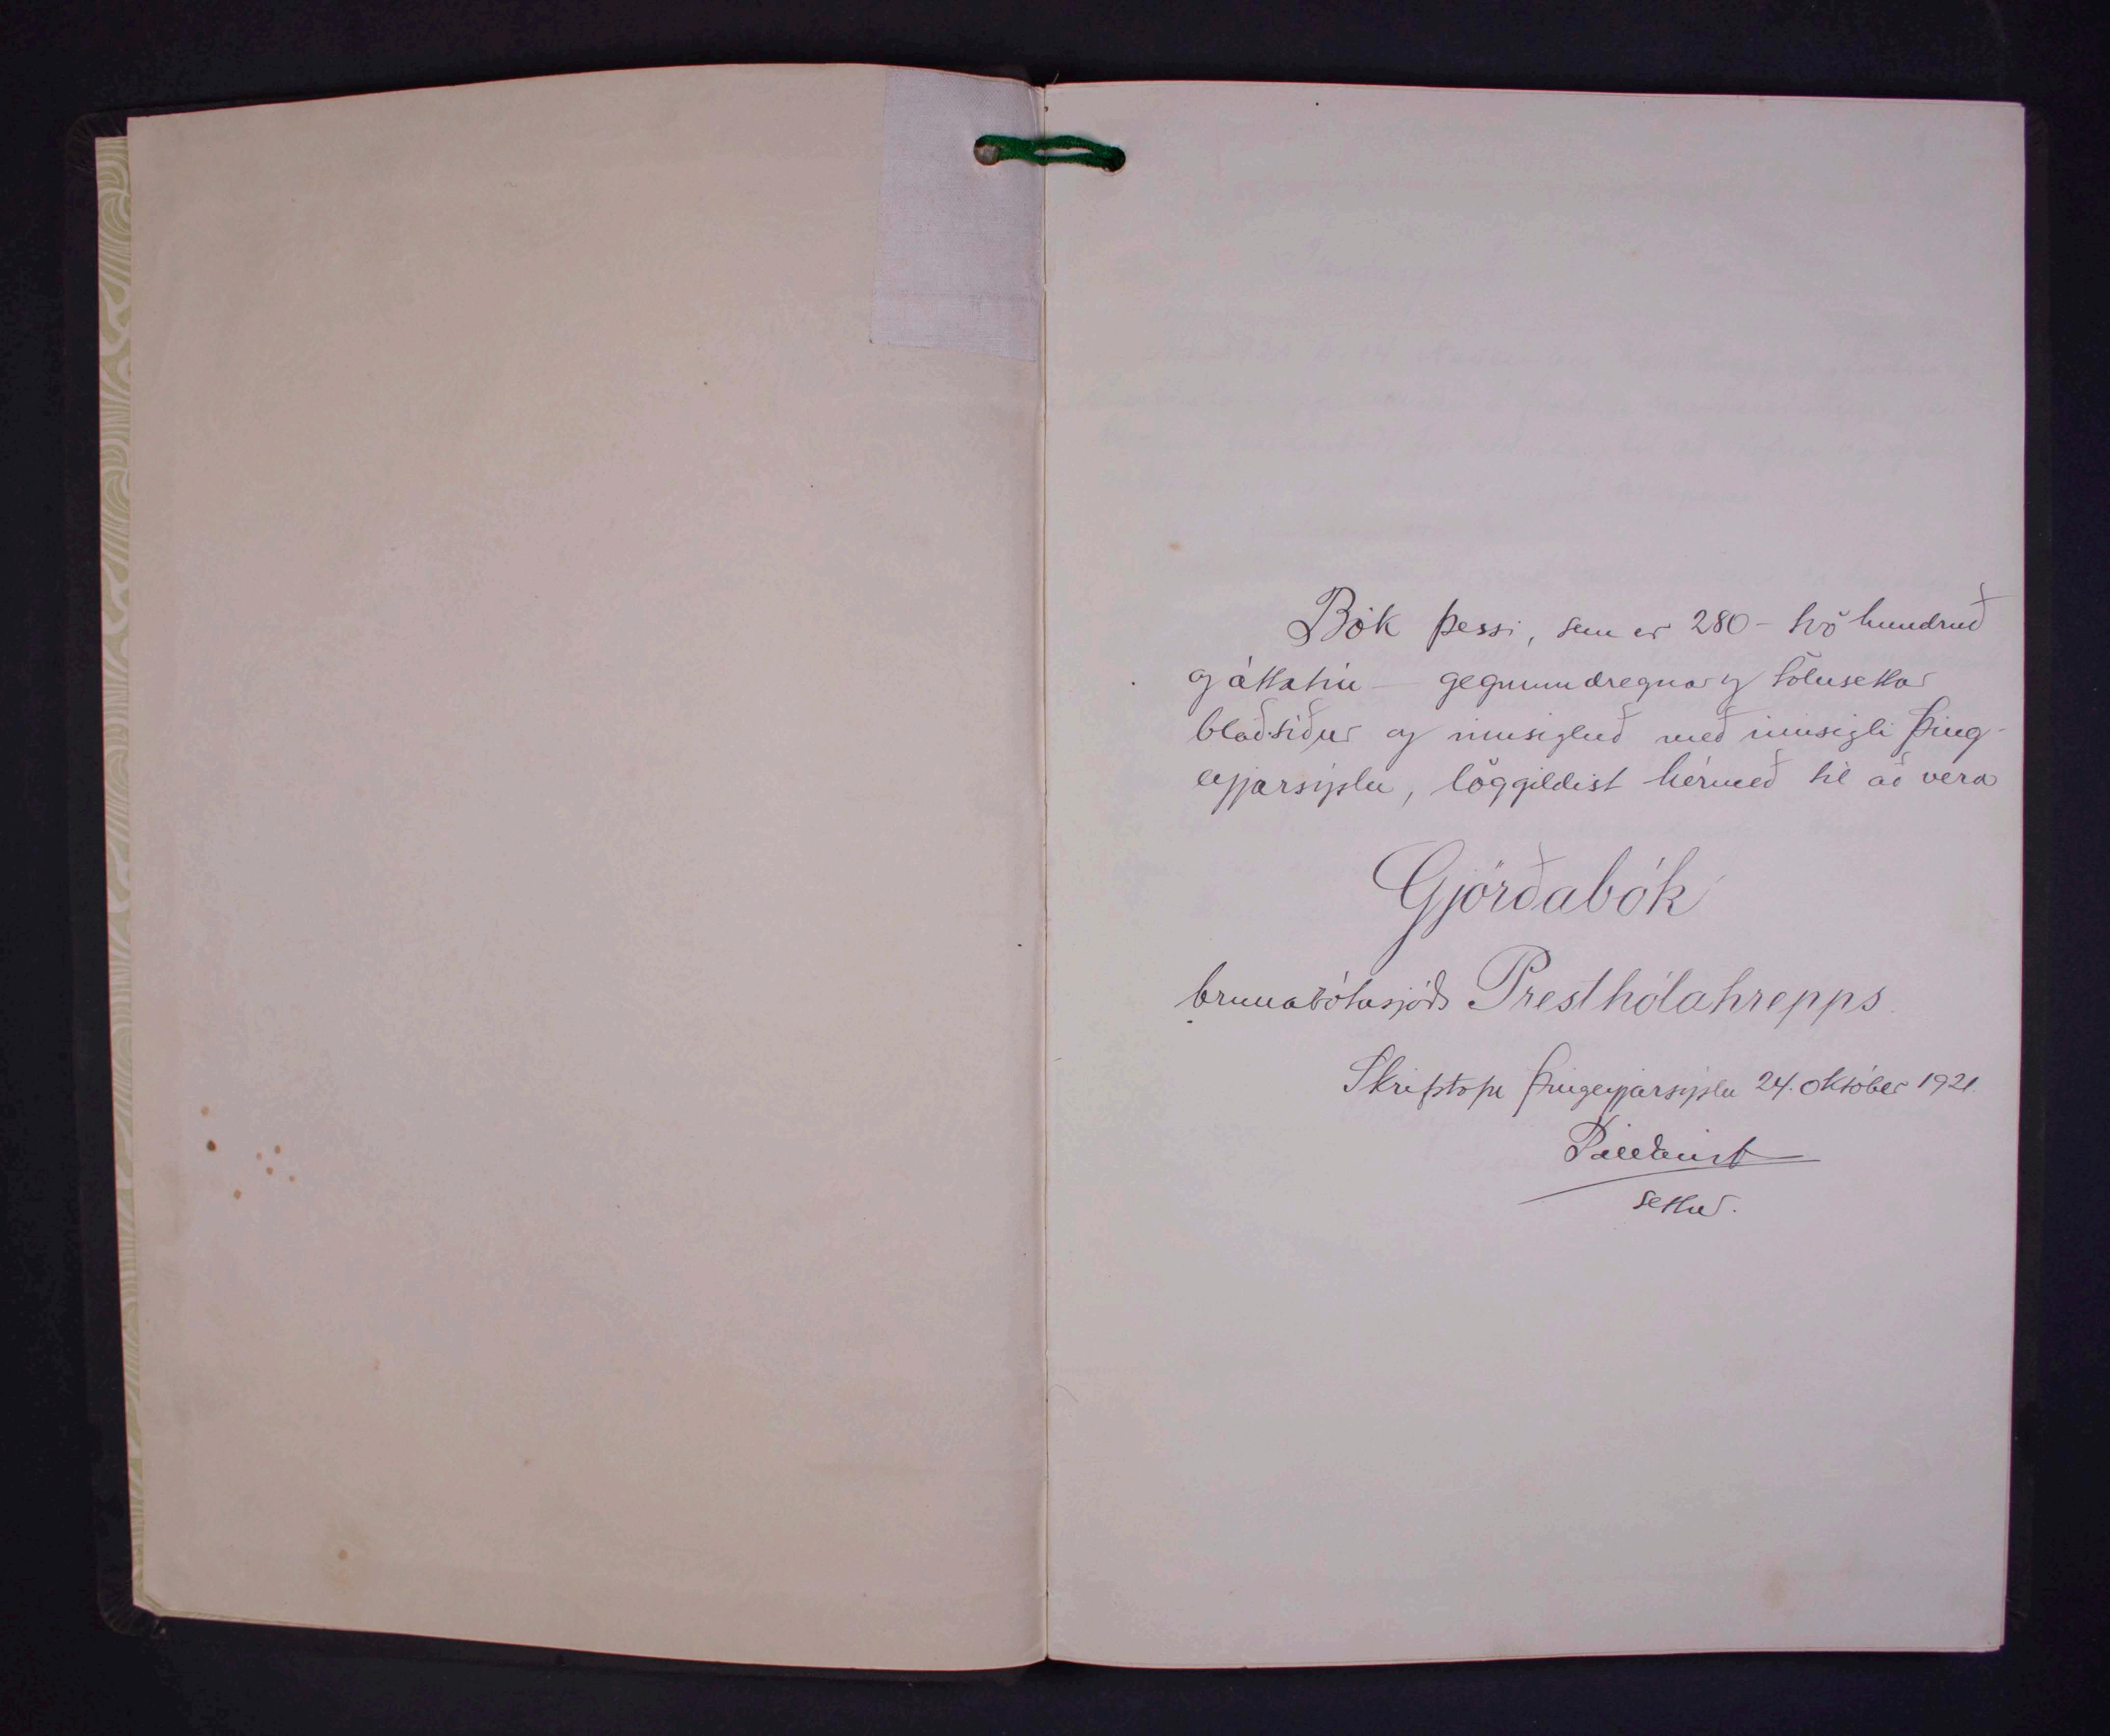 Bók þessi, sem er 280 - tvö hundruð
og áttatíu - gegnumdregnar og tölusettar
blaðsíður og innsigluð með innsigli Þing-
eyjarsýslu, löggildist hérmeð til að vera
Gjörðabók
brunabótasjóðs Presthólahrepps
Skrifstofu Þingeyjarsýslu 24. október 1921
settur.